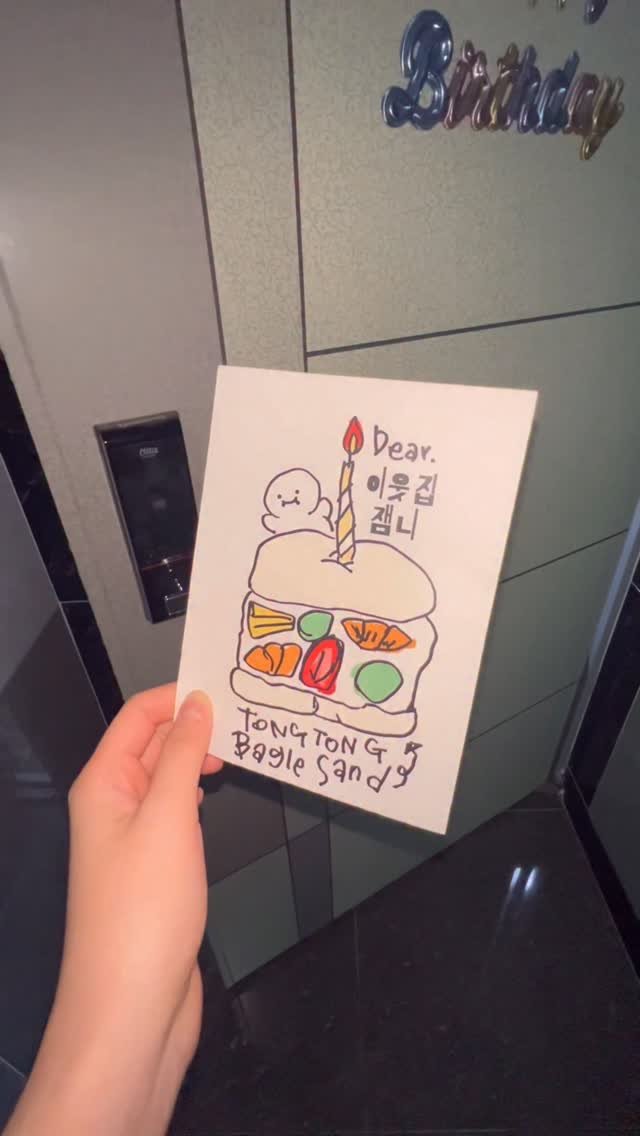 Birthday
Dear.
이웃집
잼니
TONGTONG
Bagle Sand